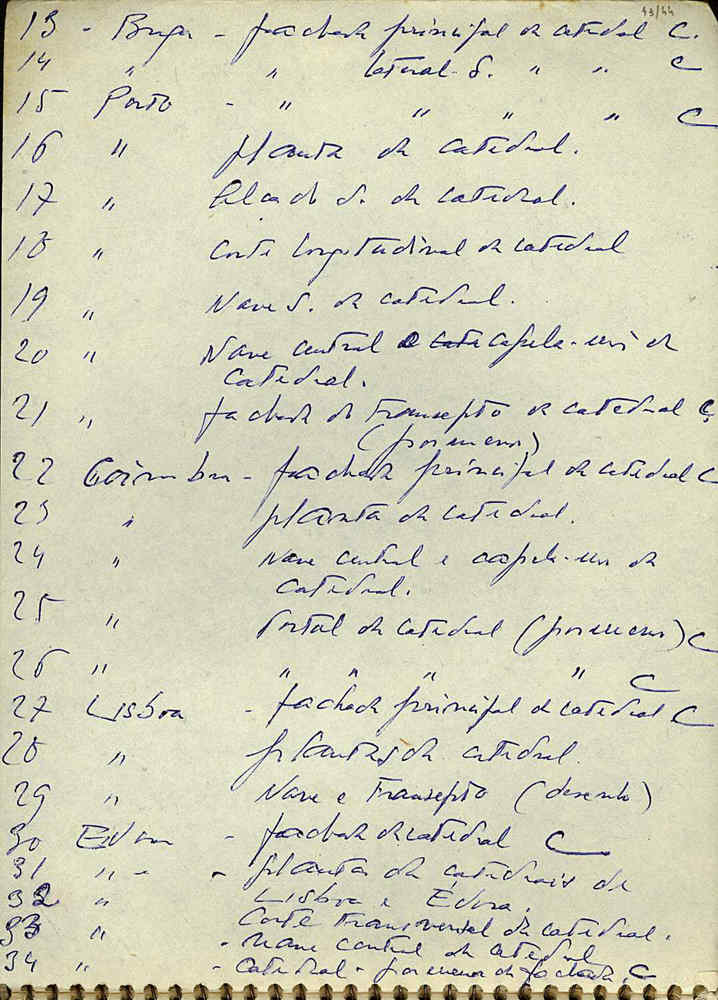 43/44
13 - Braga - fachada principal da catedral C.
14 " " lateral S. " " C
15 Porto - " " " " C
16 " planta da catedral.
17 " lado S. da catedral.
18 " Corte longitudinal da catedral
19 " Nave S. da catedral.
20 " Nave central e capela-mor da
catedral.
21 " fachada do transepto da catedral C.
(pormenor)
22 Coimbra - fachada principal da catedral C
23 " planta da catedral.
24 " Nave central e capela-mor da
catedral.
25 " Portal da catedral (pormenor) C
26 " " " " " C
27 Lisboa - fachada principal da catedral C
28 " plantas da catedral.
29 " Nave e transepto (desenho)
30 Évora - fachada da catedral C
31 " - - plantas das catedrais de
32 " Lisboa e Évora.
33 " Corte transversal da catedral.
- nave central da catedral
34 " - catedral - pormenor da fachada. C